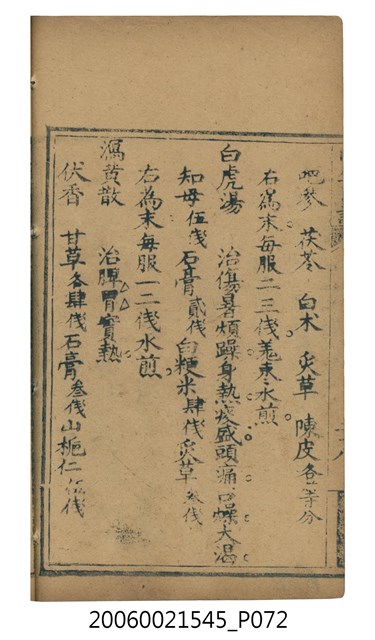 地參　茯苓　白朮　炙草　陳皮各等分
右為末每服二三伐羗枣水煎
白虎湯　治傷暑煩躁身熱痰盛頭痛口燥大渴
知母伍伐石膏貳伐白粳米肆伐炙草叁伐
右為末每服一二伐水煎
瀉黄散　治脾胃實熱
伏香　甘草各肆伐石膏叁伐山梔仁伍伐
20060021545_P072